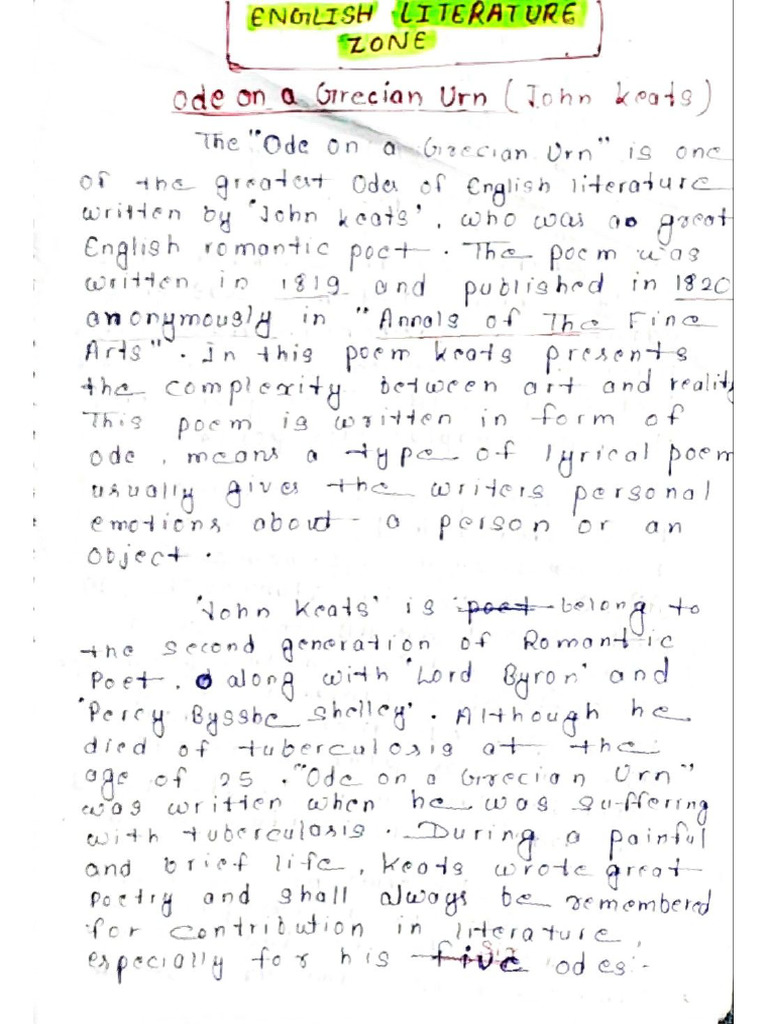 ENGLISH LITERATURE
ZONE
Ode on a Grecian Urn (John Keats)
The "Ode on a Grecian Urn" is one
of the greatest Odes of English literature
written by 'John Keats', who was a great
English romantic poet. The poem was
written in 1819 and published in 1820
anonymously in "Annals of The Fine
Arts". In this poem Keats presents
the complexity between art and reality
This poem is written in form of
ode, means a type of lyrical poem
usually gives the writers personal
emotions about a person or an
object.
'John Keats' is poet belong to
the second generation of Romantic
Poet, along with 'Lord Byron' and
'Percy Bysshe Shelley'. Although he
died of tuberculosis at the
age of 25. "Ode on a Grecian Urn"
was written when he was suffering
with tuberculosis. During a painful
and brief life, Keats wrote great
Poetry and shall always be remembered
for contribution in literature,
especially for his five odes.